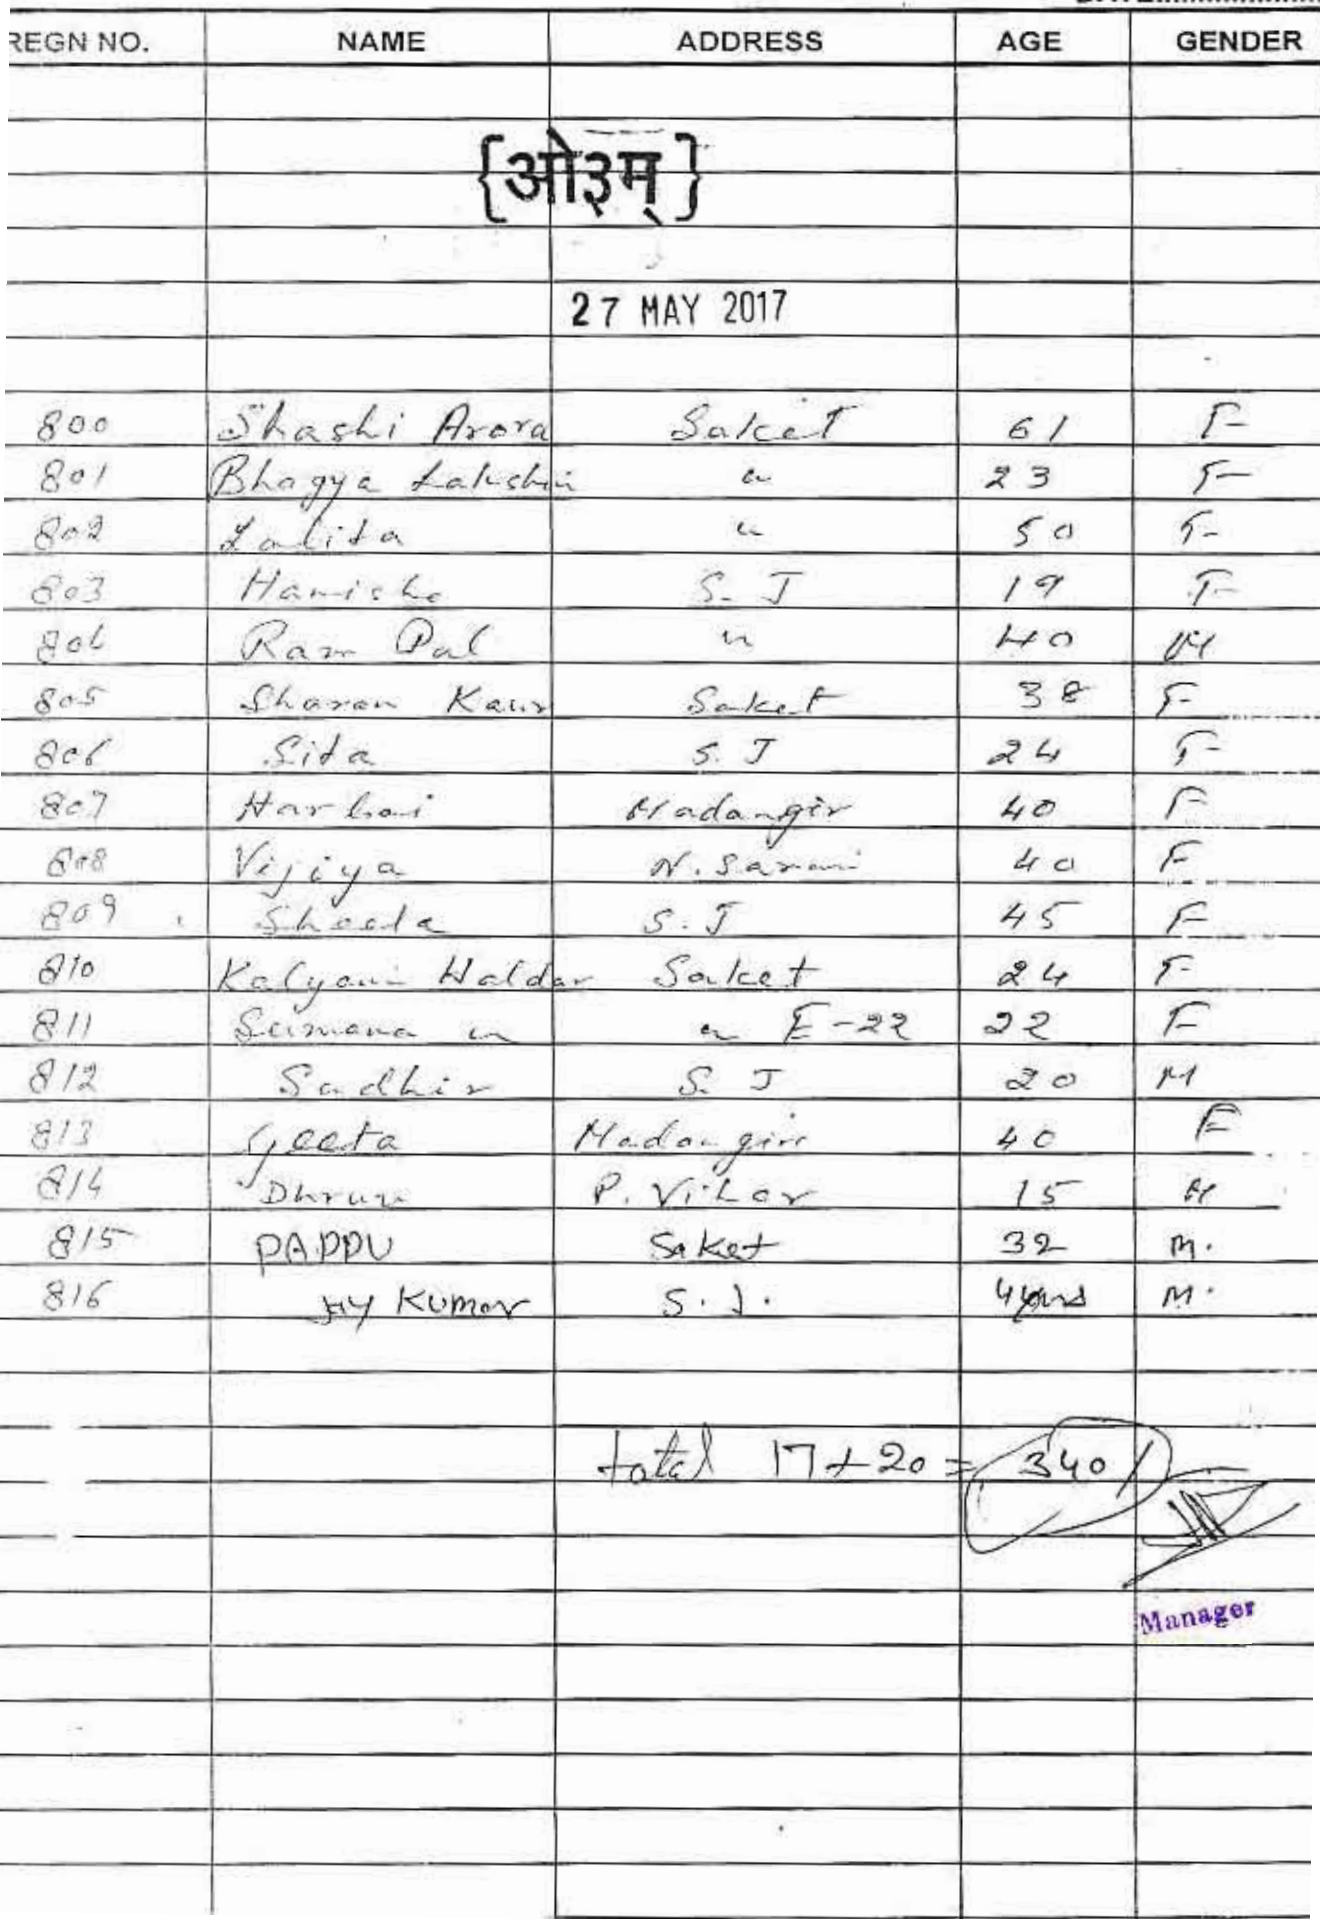 REGN NO. NAME ADDRESS AGE GENDER
{ओ३म्}
27 MAY 2017
800 Shashi Arora Saket 61 F
801 Bhagya Lakshmi " 23 F
802 Lalita " 50 F
803 S. J 19 F
804 Ram Pal " 40 M
805 Sharan Kaur Saket 38 F
806 Sita S. J 24 F
807 Harbai Madangir 40 F
808 Vijiya N. Sarai 40 F
809 Sheela S. J 45 F
810 Kalyani Haldar Saket 24 F
811 Sumana " " E-22 22 F
812 Sudhir S. J 20 M
813 Geeta Madangiri 40 F
814 Dhruv P. Vihar 15 M
815 PAPPU Saket 32 M.
816 Kumar S. J. M.
total 17+20 = 340/
Manager